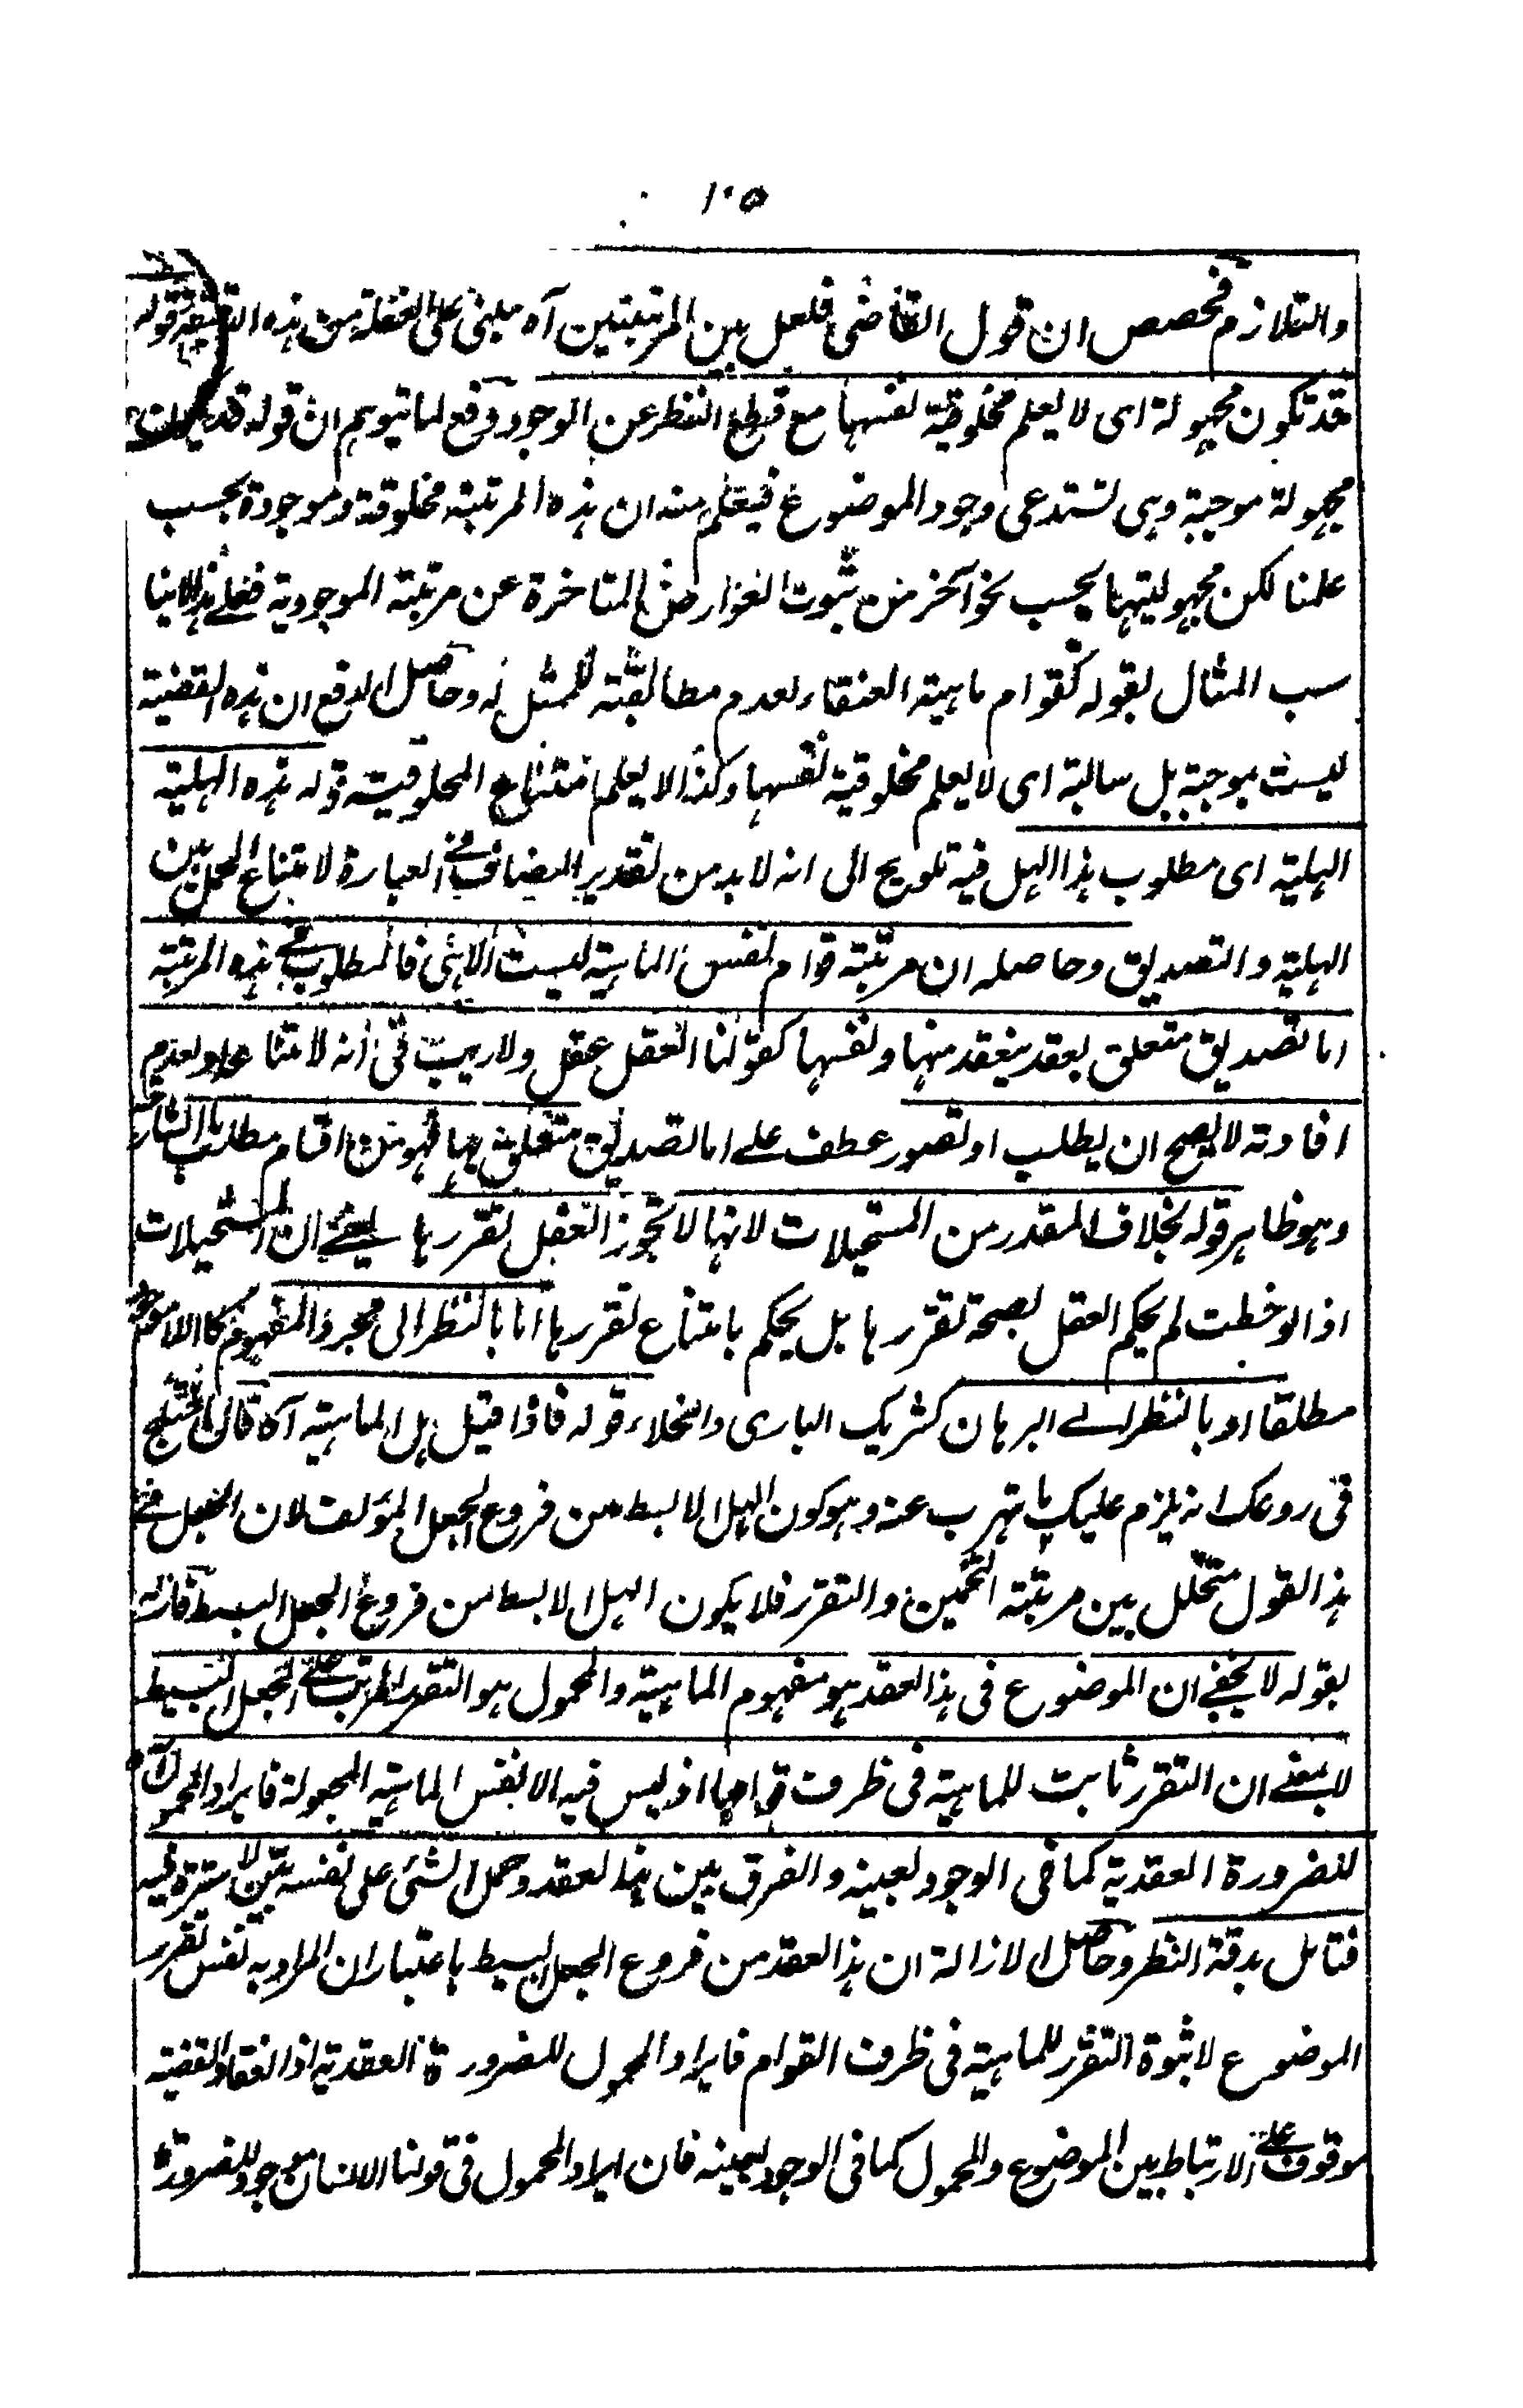 ١٠٥
والتلازم فحصص ان قول القاضى فلعل بين المرتبتين آه مبنى على الغفلة من هذه الدقيقة قوله
قد تكون مجهولة اى لا يعلم مخلوقية نفسها مع قطع النظر عن الوجود دفع لما يتوهم ان قوله قد يكون
مجهولة موجبة وهى تستدعى وجود الموضوع فيعلم منه ان هذه المرتبة مخلوقة وموجودة بحسب
علمنا لكن مجهوليتها بحسب نحو آخر من ثبوت العوارض المتاخرة عن مرتبة الموجودية فعلى هذا لا ينا
سب المثال بقوله كقوام ماهية العنقاء لعدم مطابقته للمثل له وحاصل الدفع ان هذه القضية
ليست بموجبة بل سالبة اى لا يعلم مخلوقية نفسها وكذا لا يعلم امتناع المخلوقية قوله هذه الهلية
الهلية اى مطلوب هذا الهل فيه تلويح الى انه لا بد من تقدير المضاف فى العبارة لامتناع الحمل بين
الهلية والتصديق وحاصله ان مرتبة قوام نفس الماهية ليست الا هى فالمطلوب فى هذه المرتبة
اما تصديق متعلق بعقد ينعقد منها ونفسها كقولنا العقل عقل ولا ريب فى انه لامتناعه او لعدم
افادته لا يصح ان يطلب او تصور عطف على اما تصديق متعلق بها فهو من اقسام مطلب ما الشارحة
وهو ظاهر قوله بخلاف المقدر من المستحيلات لانها لا تجوز العقل تقررها يعنى ان المستحيلات
اذا لوحظت لم يحكم العقل بصحة تقررها بل يحكم بامتناع تقررها اما بالنظر الى مجرد المفهوم كاللاموجود
مطلقا او بالنظر الى البرهان كشريك البارى والخلاء قوله فاذا قيل هل الماهية آه قال يختلج
فى روعك انه يلزم عليك ما تهرب عنه وهو كون الهل الابسط من فروع الجعل المؤلف لان الجعل فى
هذا القول متخلل بين مرتبة التخمين والتقرر فلا يكون الهل الابسط من فروع الجعل البسيط فازاله
بقوله لا يخفى ان الموضوع فى هذا العقد هو مفهوم الماهية والمحمول هو التقرر المرتب على الجعل البسيط
لا بمعنى ان التقرر ثابت للماهية فى ظرف قوامها اذ ليس فيه الا نفس الماهية المجعولة فايراد المحمول
للضرورة العقدية كما فى الوجود بعينه والفرق بين هذا العقد وحمل الشئ على نفسه بين لا سترة فيه
فتامل بدقة النظر وحاصل الازالة ان هذا العقد من فروع الجعل البسيط باعتبار ان المراد به نفس تقرر
الموضوع لا ثبوة التقرر للماهية فى ظرف القوام فايراد المحمول للضرورة العقدية اذ انعقاد القضية
موقوف على الارتباط بين الموضوع والمحمول كما فى الوجود بعينه فان ايراد المحمول فى قولنا الانسان موجود للضرورة